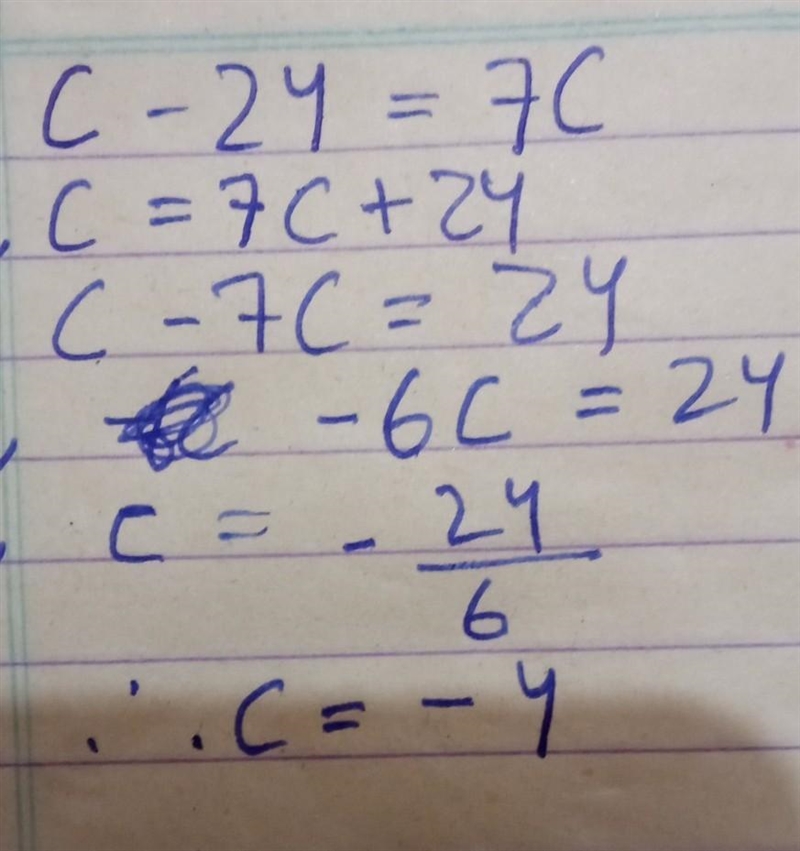 C - 24 = 7C
C = 7C + 24
C - 7C = 24
- 6C = 24
C = - 24/6
∴ C = - 4